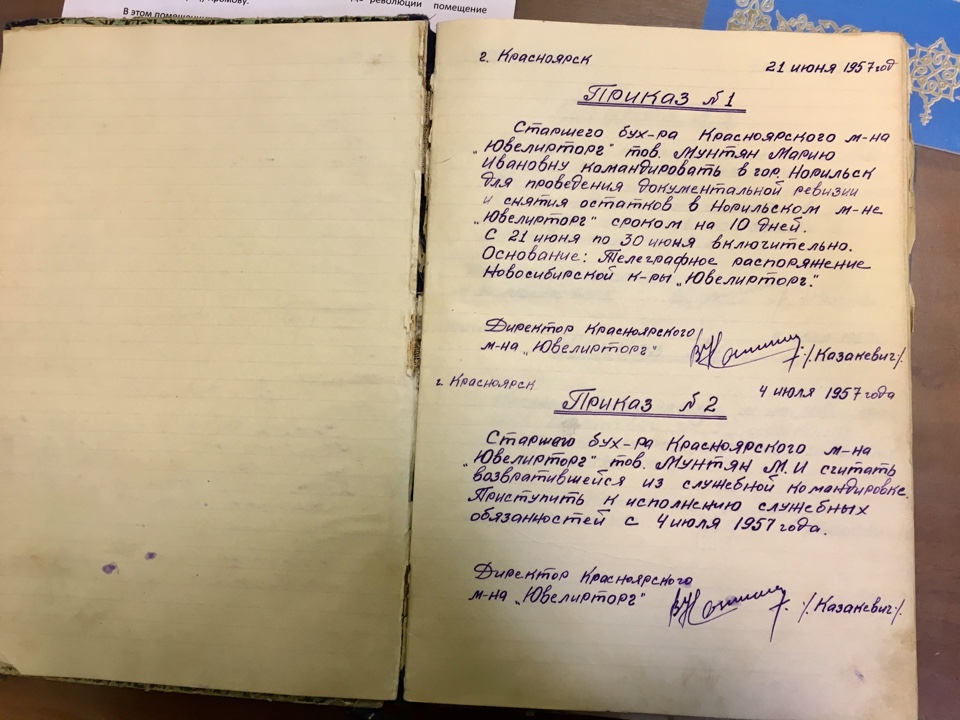 революции помещение
В этом помещении
г. Красноярск
21 июня 1957 год
Приказ №1
Старшего бух-ра Красноярского м-на
„Ювелирторг" тов. Мунтян Марию
Ивановну командировать в гор. Норильск
для проведения документальной ревизии
и снятия остатков в Норильском м-не
„Ювелирторг" сроком на 10 дней.
С 21 июня по 30 июня включительно.
Основание: Телеграфное распоряжение
Новосибирской к-ры „Ювелирторг."
Директор Красноярского
м-на „Ювелирторг"
/Казакевич/.
г. Красноярск
4 июля 1957 года
Приказ №2
Старшего бух-ра Красноярского м-на
„Ювелирторг" тов. Мунтян М.И считать
возвратившейся из служебной командировке.
Приступить к исполнению служебных
обязанностей с 4 июля 1957 года.
Директор Красноярского
м-на „Ювелирторг"
/Казакевич/.